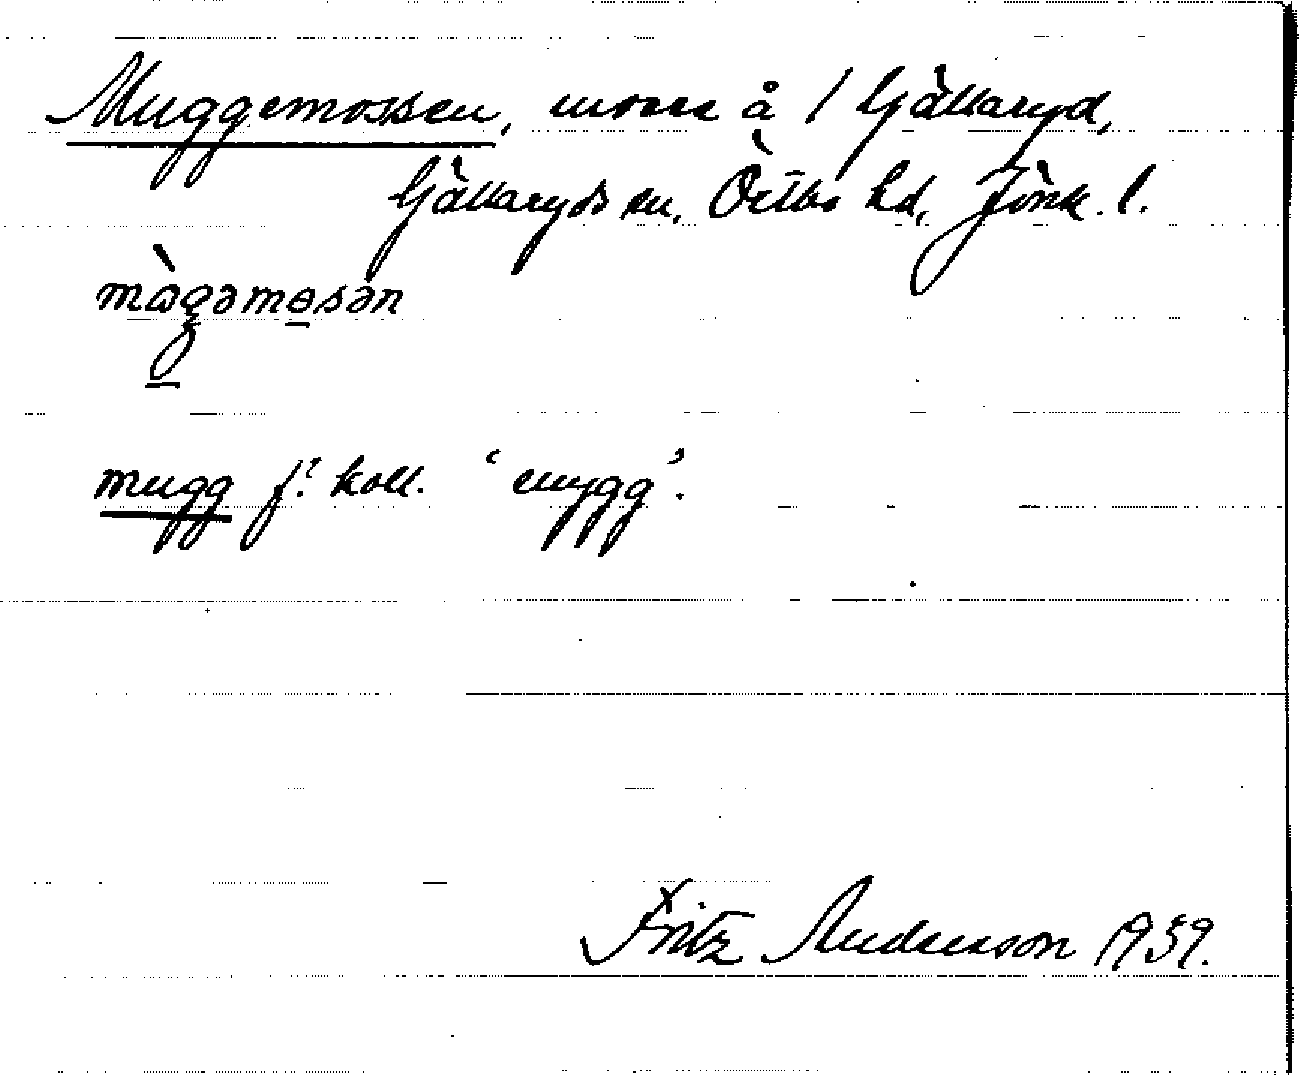 Muggemossen, mosse å 1 Gällaryd,
Gällaryds sn, Östbo hd, Jönk. l.
mugg f.? koll. ‘mygg’.
Fritz Andersson 1939.